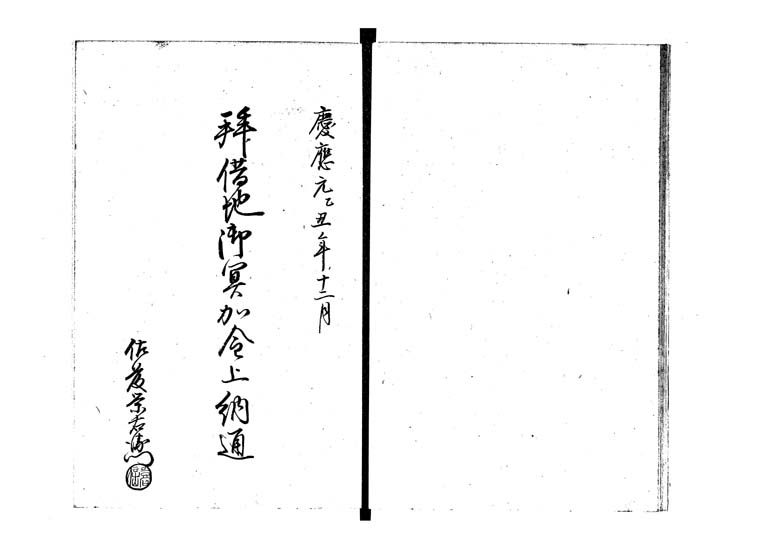 慶應元乙丑年十二月
拝借地御冥加金上納通
佐藤景右衛門